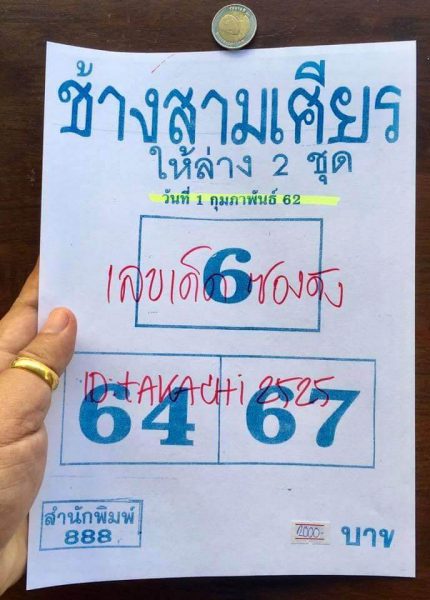 ช้างสามเศียร
ให้ล่าง 2 ชุด
วันที่ 1 กุมภาพันธ์ 62
6
เลขเด็ด ซองดัง
ID:tAKACHi 2525
64 67
สำนักพิมพ์
888
4000.-
บาท